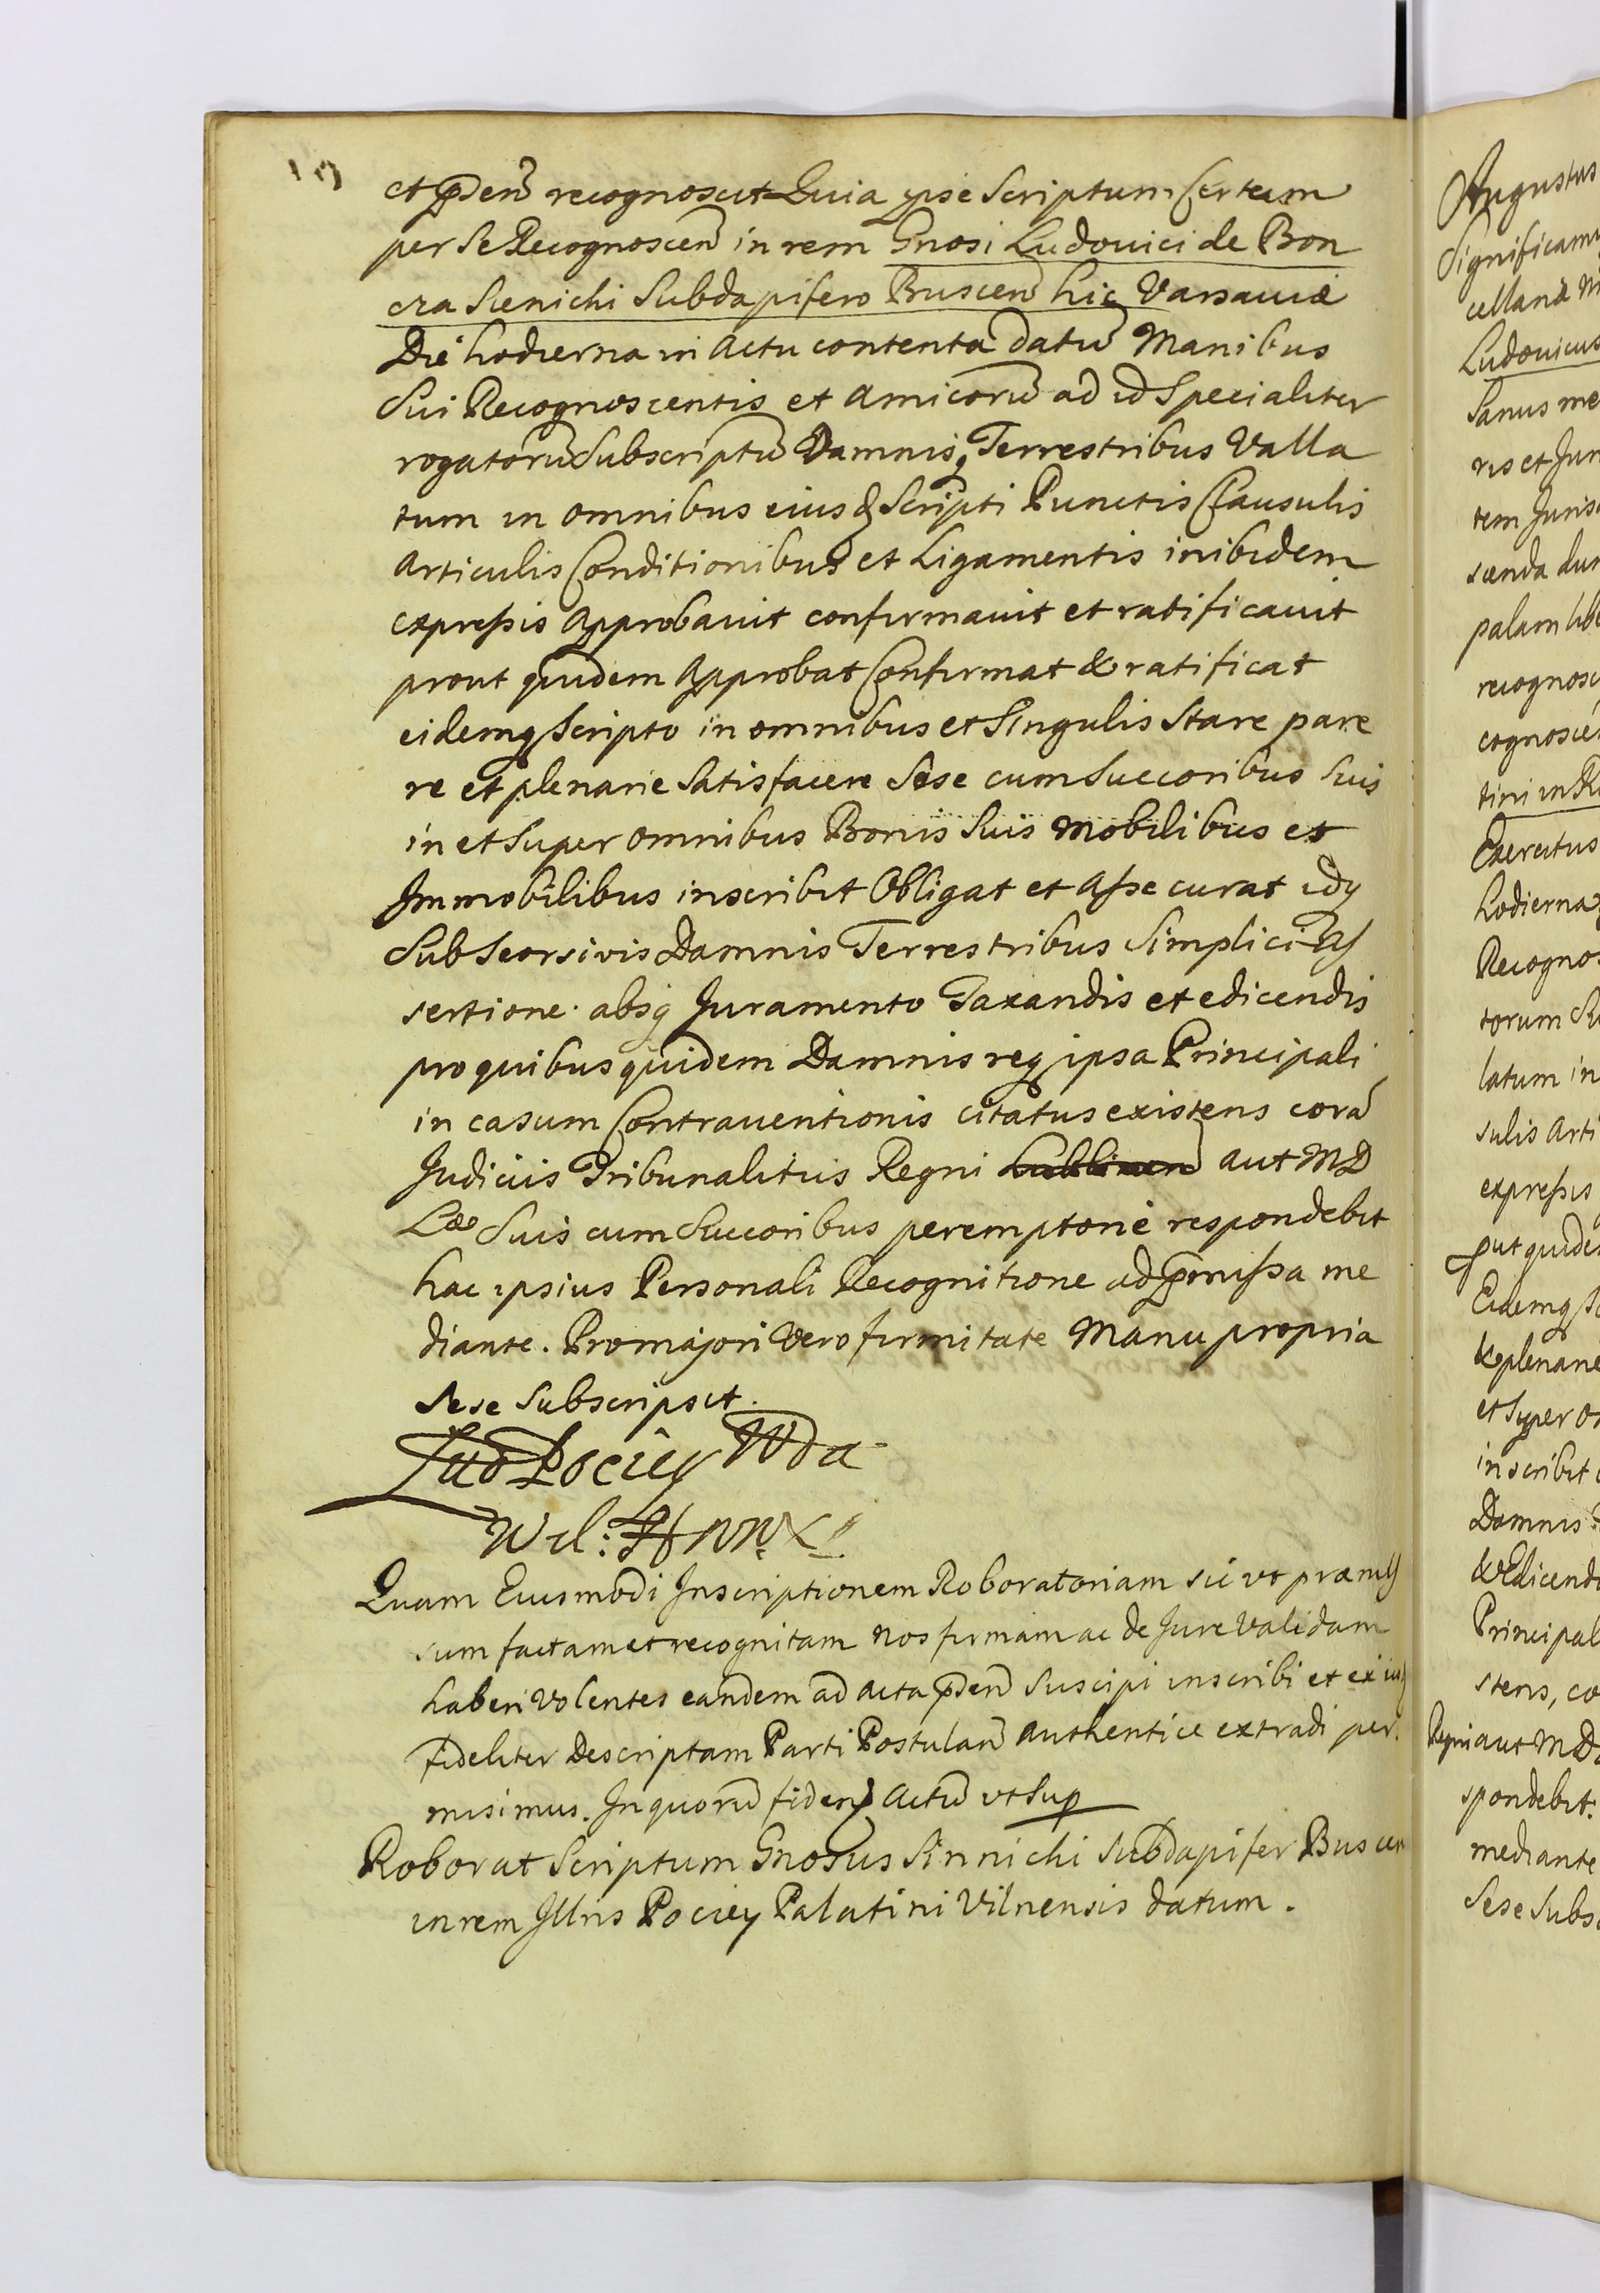 et p̃sen̄ recognoscit Quia ipse Scriptum Certum
per Se Recognoscen̄ in rem Gnosi Ludouici de Bon
cza Sienichi Subdapifero Buscen̄ hic Varsauiæ
Die hodierna in Actu contenta datū Manibus
Sui Recognoscentis et Amicorū ad id Specialiter
rogatorū Subscriptū Damnisq Terrestribus Valla
tum in omnibus eiusq Scripti Punctis Clausulis
Articulis Conditionibus et Ligamentis inibidem
expressis Approbavit confirmavit et ratificavit
prout quidem Approbat Confirmat & ratificat
eidemq Scripto in omnibus et Singulis Stare pare
re et plenarie Satisfacere Sese cum Succoribus Suis
in et Super omnibus Bonis Suis Mobilibus et
Immobilibus inscribit Obligat et Assecurat idq
Sub Seorsivis Damnis Terrestribus Simplici As
sertione absq Juramento Taxandis et edicendis
pro quibus quidem Damnis req ipsa Principali
in casum Contrauentionis citatus existens corã
Judiciis Tribunalitiis Regni Lublinen̄ aut MD
Læ Suis cum Succoribus peremptorie respondebit
hac ipsius Personali Recognitione ad p̃missa me
diante. Pro majori Vero firmitate Manu propria
Sese Subscripsit.
Lud Pociey Wda
Wil: H
Quam Eiusmodi Inscriptionem Roboratoriam sic ut præmis
sum factam et recognitam nos firmam ac de Jure Validam
haberi Volentes eandem ad acta p̃sen̄ Suscipi inscribi et ex iis
fideliter Descriptam Parti Postulan̄ authentice extradi per
misimus. In quorū fidem Actū ut Sup
Roborat Scriptum Gnosus Sinnichi Subdapifer Buscen
in rem Illris Pociey Palatini Vilnensis datum.
Augustus
Significamus
cellaria
Ludouicus
Sanus me
ris et Jur
tem Juris
scenda
palam lib
recognos
cognoscen
tini in
Exercitus
hodierna
Recognos
torum Su
latum in
sulis Arti
expressis
put quide
Eidemq Sc
& plenarie
et Super o
inscribit
Damnis
& Edicend
Principal
stens, co
Regni aut MD
spondebit
mediante
Sese Subs